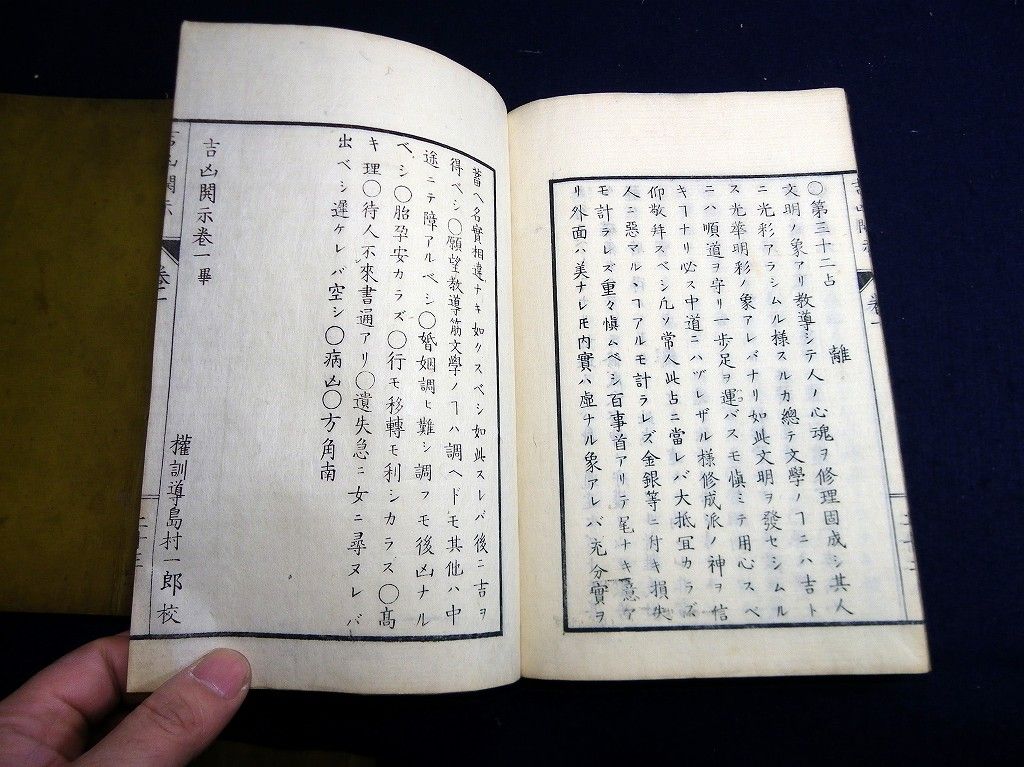 〇第三十二占　離
文明ノ象アリ教導シテ人ノ心魂ヲ修理固成シ其人
ニ光彩アラシムル様スルカ總テ文學ノヿニハ吉ト
ス光華明彩ノ象アレバナリ如此文明ヲ發セシムル
ニハ順道ヲ守リ一歩足ヲ運バスモ慎ミテ用心スベ
キヿナリ必ス中道ニハヅレザル様修成派ノ神ヲ信
仰敬拜スベシ凡ソ常人此占ニ當レバ大抵冝カラズ
人ニ惡マルヽヿアルモ計ラレズ金銀等ニ付キ損失
モ計ラレズ重々慎ムベシ百事首アリテ尾ナキ意ア
リ外面ハ美ナレ𪜈内實ハ虚ナル象アレバ充分實ヲ
蓄へ名實相違ナキ如クスベシ如此スレバ後ニ吉ヲ
得ベシ〇願望教導筋文學ノヿハ調ヘドモ其他ハ中
途ニテ障アルベシ〇婚姻調ヒ難シ調フモ後凶ナル
ベシ〇胎孕安カラズ〇行モ移轉モ利シカラス〇髙
キ理〇待人不來書通アリ〇遺失急ニ女ニ尋ヌレバ
出ベシ遲ケレバ空シ〇病凶〇方角南
吉凶開示卷一畢
權訓導島村一郎校
吉凶開示
卷一